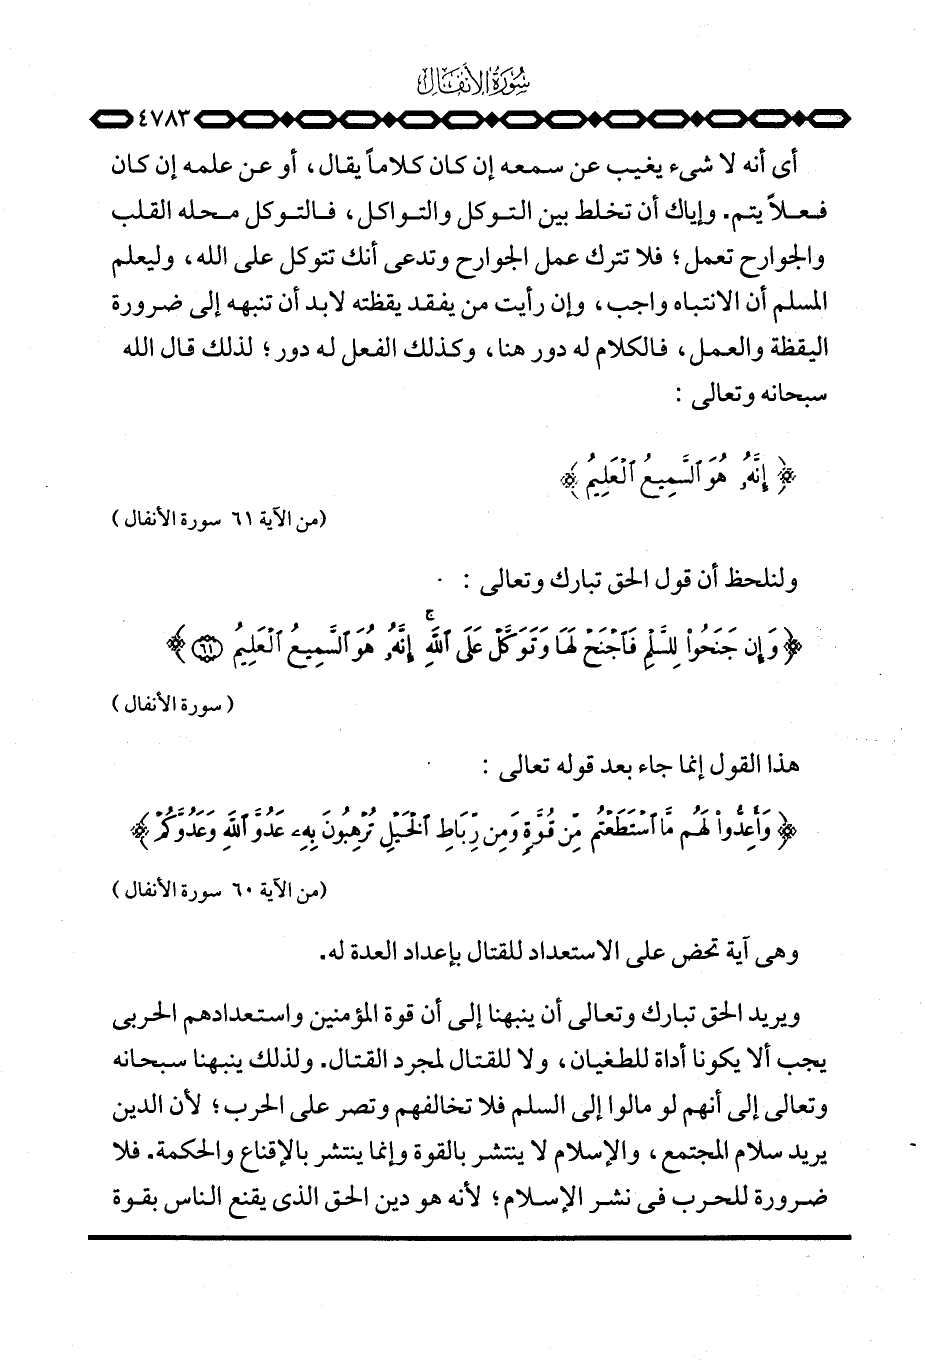 سُورَةُ الأَنفَالِ
٤٧٨٣
أى أنه لا شىء يغيب عن سمعه إن كان كلاماً يقال، أو عن علمه إن كان
فعلاً يتم. وإياك أن تخلط بين التوكل والتواكل، فالتوكل محله القلب
والجوارح تعمل؛ فلا تترك عمل الجوارح وتدعى أنك تتوكل على الله، وليعلم
المسلم أن الانتباه واجب، وإن رأيت من يفقد يقظته لابد أن تنبهه إلى ضرورة
اليقظة والعمل، فالكلام له دور هنا، وكذلك الفعل له دور؛ لذلك قال الله
سبحانه وتعالى :
﴿ إِنَّهُۥ هُوَ ٱلسَّمِيعُ ٱلْعَلِيمُ ﴾
(من الآية ٦١ سورة الأنفال)
ولنلحظ أن قول الحق تبارك وتعالى :
﴿ وَإِن جَنَحُوا۟ لِلسَّلْمِ فَٱجْنَحْ لَهَا وَتَوَكَّلْ عَلَى ٱللَّهِ ۚ إِنَّهُۥ هُوَ ٱلسَّمِيعُ ٱلْعَلِيمُ ٦١ ﴾
( سورة الأنفال )
هذا القول إنما جاء بعد قوله تعالى :
﴿ وَأَعِدُّوا۟ لَهُم مَّا ٱسْتَطَعْتُم مِّن قُوَّةٍ وَمِن رِّبَاطِ ٱلْخَيْلِ تُرْهِبُونَ بِهِۦ عَدُوَّ ٱللَّهِ وَعَدُوَّكُمْ ﴾
(من الآية ٦٠ سورة الأنفال)
وهى آية تحض على الاستعداد للقتال بإعداد العدة له.
ويريد الحق تبارك وتعالى أن ينبهنا إلى أن قوة المؤمنين واستعدادهم الحربى
يجب ألا يكونا أداة للطغيان، ولا للقتال لمجرد القتال. ولذلك ينبهنا سبحانه
وتعالى إلى أنهم لو مالوا إلى السلم فلا تخالفهم وتصر على الحرب؛ لأن الدين
يريد سلام المجتمع، والإسلام لا ينتشر بالقوة وإنما ينتشر بالإقناع والحكمة. فلا
ضرورة للحرب فى نشر الإسلام؛ لأنه هو دين الحق الذى يقنع الناس بقوة